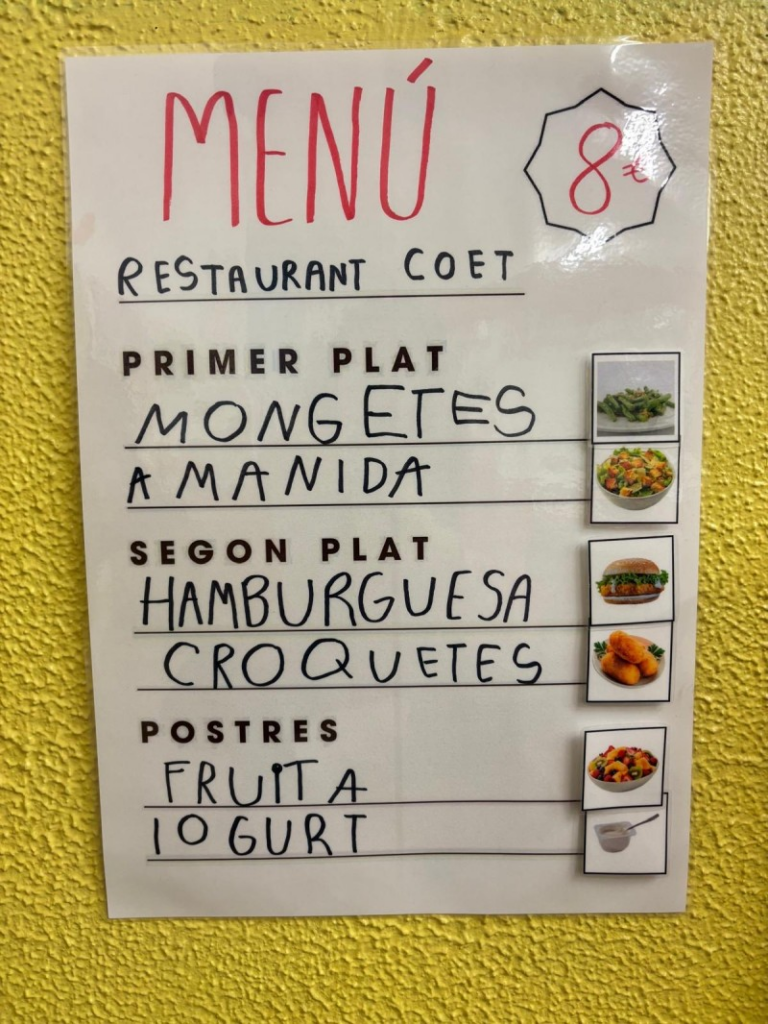 MENÚ
8€
RESTAURANT COET
PRIMER PLAT
MONGETES
AMANIDA
SEGON PLAT
HAMBURGUESA
CROQUETES
POSTRES
FRUITA
IOGURT